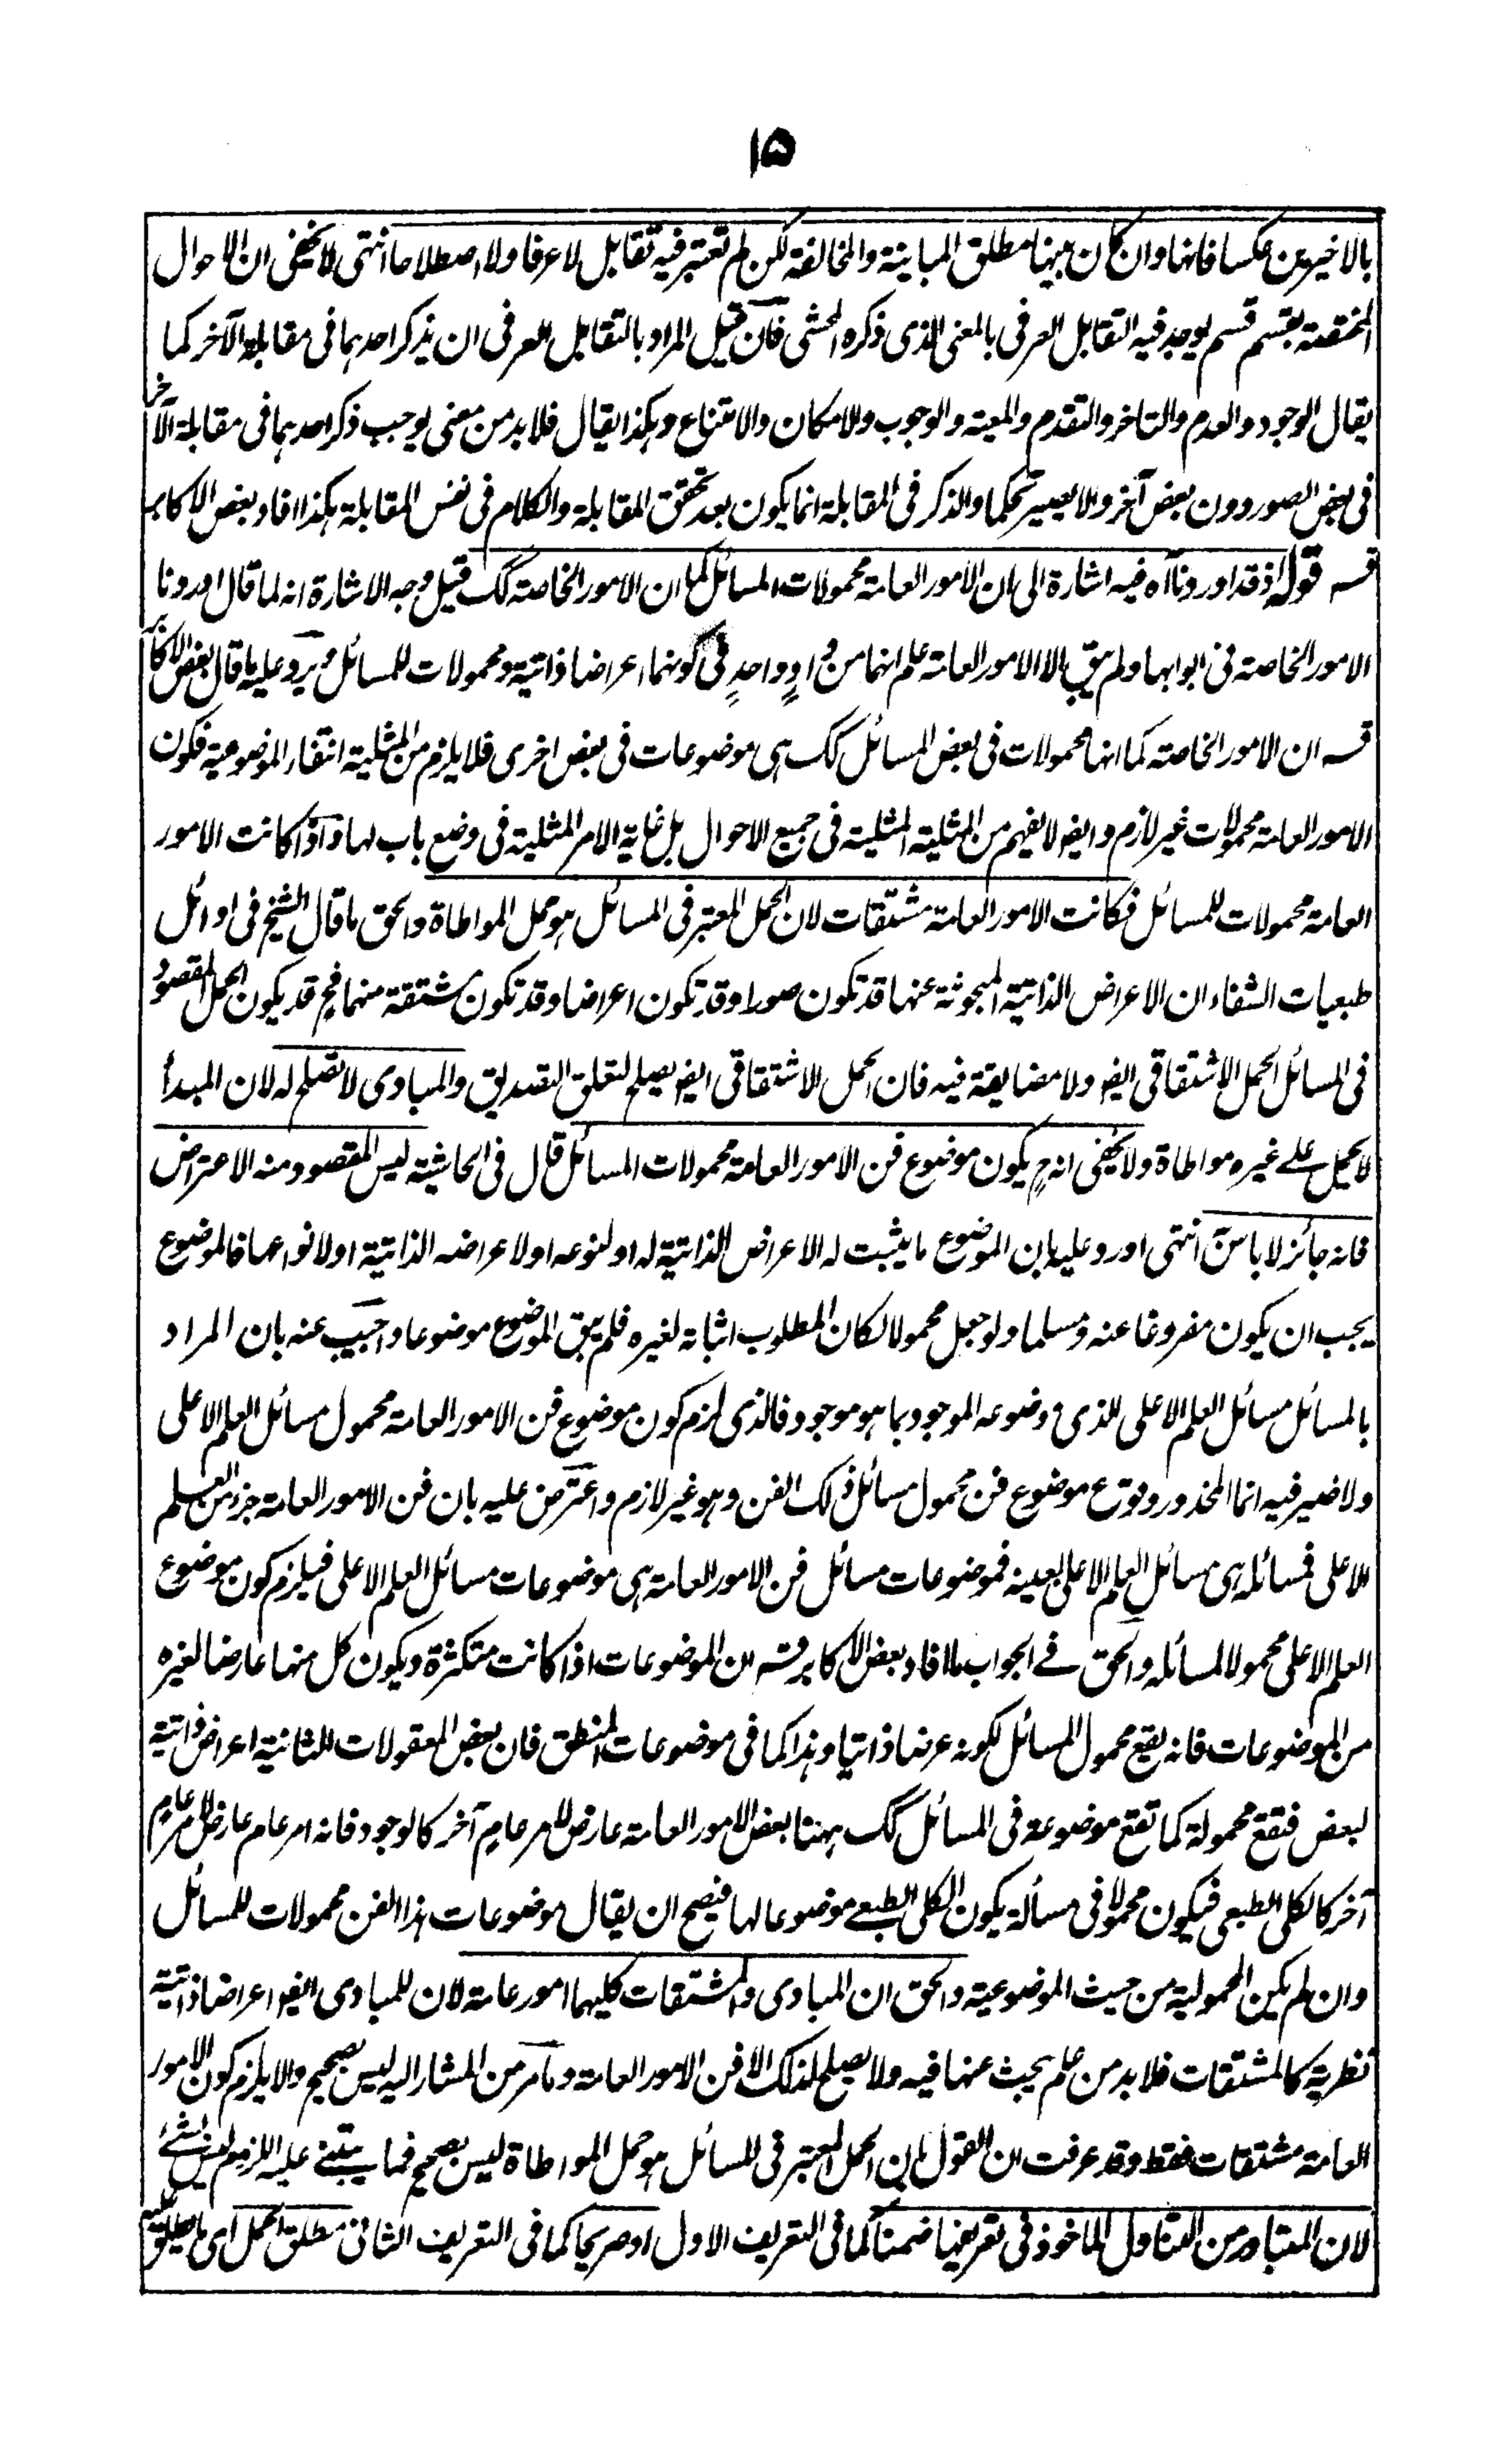 ۱۵
بالاخيرين عكسا فانها وان كان بينها مطلق المباينة والمخالفة لكن لم تعتبر فيه تقابل لا عرفا ولا اصطلاحا انتهى لا يخفى ان الاحوال
المختصة بقسم قسم يوجد فيه التقابل العرفى بالمعنى الذى ذكره المحشى فان قيل المراد بالتقابل العرفى ان يذكر احدهما فى مقابلة الآخر كما
يقال الوجود والعدم والتاخر والتقدم والمعية والوجوب والامكان والامتناع وهكذا يقال فلا بد من معنى يوجب ذكر احدهما فى مقابلة الآخر
فى بعض الصور دون بعض آخر والا يصير تحكما والذكر فى المقابلة انما يكون بعد تحقق المقابلة والكلام فى نفس المقابلة هكذا افاد بعض الاكابر
قسه قوله اذ قد اوردنا آه فيه اشارة الى ان الامور العامة محمولات المسائل كما ان الامور الخاصة كك قيل وجه الاشارة انه لما قال اوردنا
الامور الخاصة فى ابوابها ولم يبق الا الامور العامة علم انهما من وادٍ واحدٍ فى كونهما اعراضا ذاتية ومحمولات للمسائل ويرد عليه ما قال بعض الاكابر
قسه ان الامور الخاصة كما انها محمولات فى بعض المسائل كك هى موضوعات فى بعض اخرى فلا يلزم من المثلية انتفاء الموضوعية فكون
الامور العامة محمولات غير لازم وايضو لا يفهم من المثلية المثلية فى جميع الاحوال بل غاية الامر المثلية فى وضع باب لها واذا كانت الامور
العامة محمولات للمسائل فكانت الامور العامة مشتقات لان الحمل المعتبر فى المسائل هو حمل المواطاة والحق ما قال الشيخ فى اوائل
طبعيات الشفاء ان الاعراض الذاتية المبحوثة عنها قد تكون صورا وقد تكون اعراضا وقد تكون مشتقة منهما فح قد يكون الحمل المقصود
فى المسائل الحمل الاشتقاقى ايضو ولا مضايقة فيه فان الحمل الاشتقاقى ايضو يصلح لتعلق التصديق والمبادى لا تصلح له لان المبدأ
لا يحمل على غيره مواطاة ولا يخفى انه ح يكون موضوع فن الامور العامة محمولات المسائل قال فى الحاشية ليس المقصود منه الاعتراض
فانه جائز لا باس انتهى اورد عليه بان الموضوع ما يثبت له الاعراض الذاتية له او لنوعه او لاعراضه الذاتية او لانواعها فالموضوع
يجب ان يكون مفروغا عنه ومسلما ولو جعل محمولا لكان المطلوب اثباته لغيره فلم يبق الموضوع موضوعا واجيب عنه بان المراد
بالمسائل مسائل العلم الاعلى الذى موضوعه الموجود بما هو موجود فالذى لزم كون موضوع فن الامور العامة محمول مسائل العلم الاعلى
ولا ضير فيه انما المحذور وقوع موضوع فن محمول مسائل ذلك الفن وهو غير لازم واعترض عليه بان فن الامور العامة جزء من العلم
الاعلى فمسائله هى مسائل العلم الاعلى بعينه فموضوعات مسائل فن الامور العامة هى موضوعات مسائل العلم الاعلى فيلزم كون موضوع
العلم الاعلى محمولا لمسائله والحق فے الجواب ما افاد بعض الاكابر قسه ان الموضوعات اذا كانت متكثرة ويكون كل منها عارضا لغيره
من الموضوعات فانه يقع محمول المسائل لكونه عرضا ذاتيا وهذا كما فى موضوعات المنطق فان بعض المعقولات الثانية اعراض ذاتية
لبعض فتقع محمولة كما تقع موضوعة فى المسائل كك ههنا بعض الامور العامة عارض لامر عام آخر كالوجود فانه امر عام عارض لامر عام
آخر كالكلى الطبعى فيكون محمولا فى مسألة يكون الكلى الطبعے موضوعا لها فيصح ان يقال موضوعات هذا الفن محمولات للمسائل
وان لم يكن المحمولية من حيث الموضوعية والحق ان المبادى والمشتقات كليهما امور عامة لان للمبادى ايضو اعراضا ذاتية
نظرية كالمشتقات فلا بد من علم يبحث عنها فيه ولا يصلح لذلك الا فن الامور العامة وما مر من المشار اليه ليس بصحيح والا يلزم كون الامور
العامة مشتقات فقط وقد عرفت ان القول بان الحمل المعتبر فى المسائل هو حمل المواطاة ليس بصحيح فما يبتنے عليه اللزوم ليس بشئ
لان المتبادر من التناول الماخوذ فى تعريفها ضمنا كما فى التعريف الاول او صريحا كما فى التعريف الثانى مطلق الحمل اى ما يطلق عليه